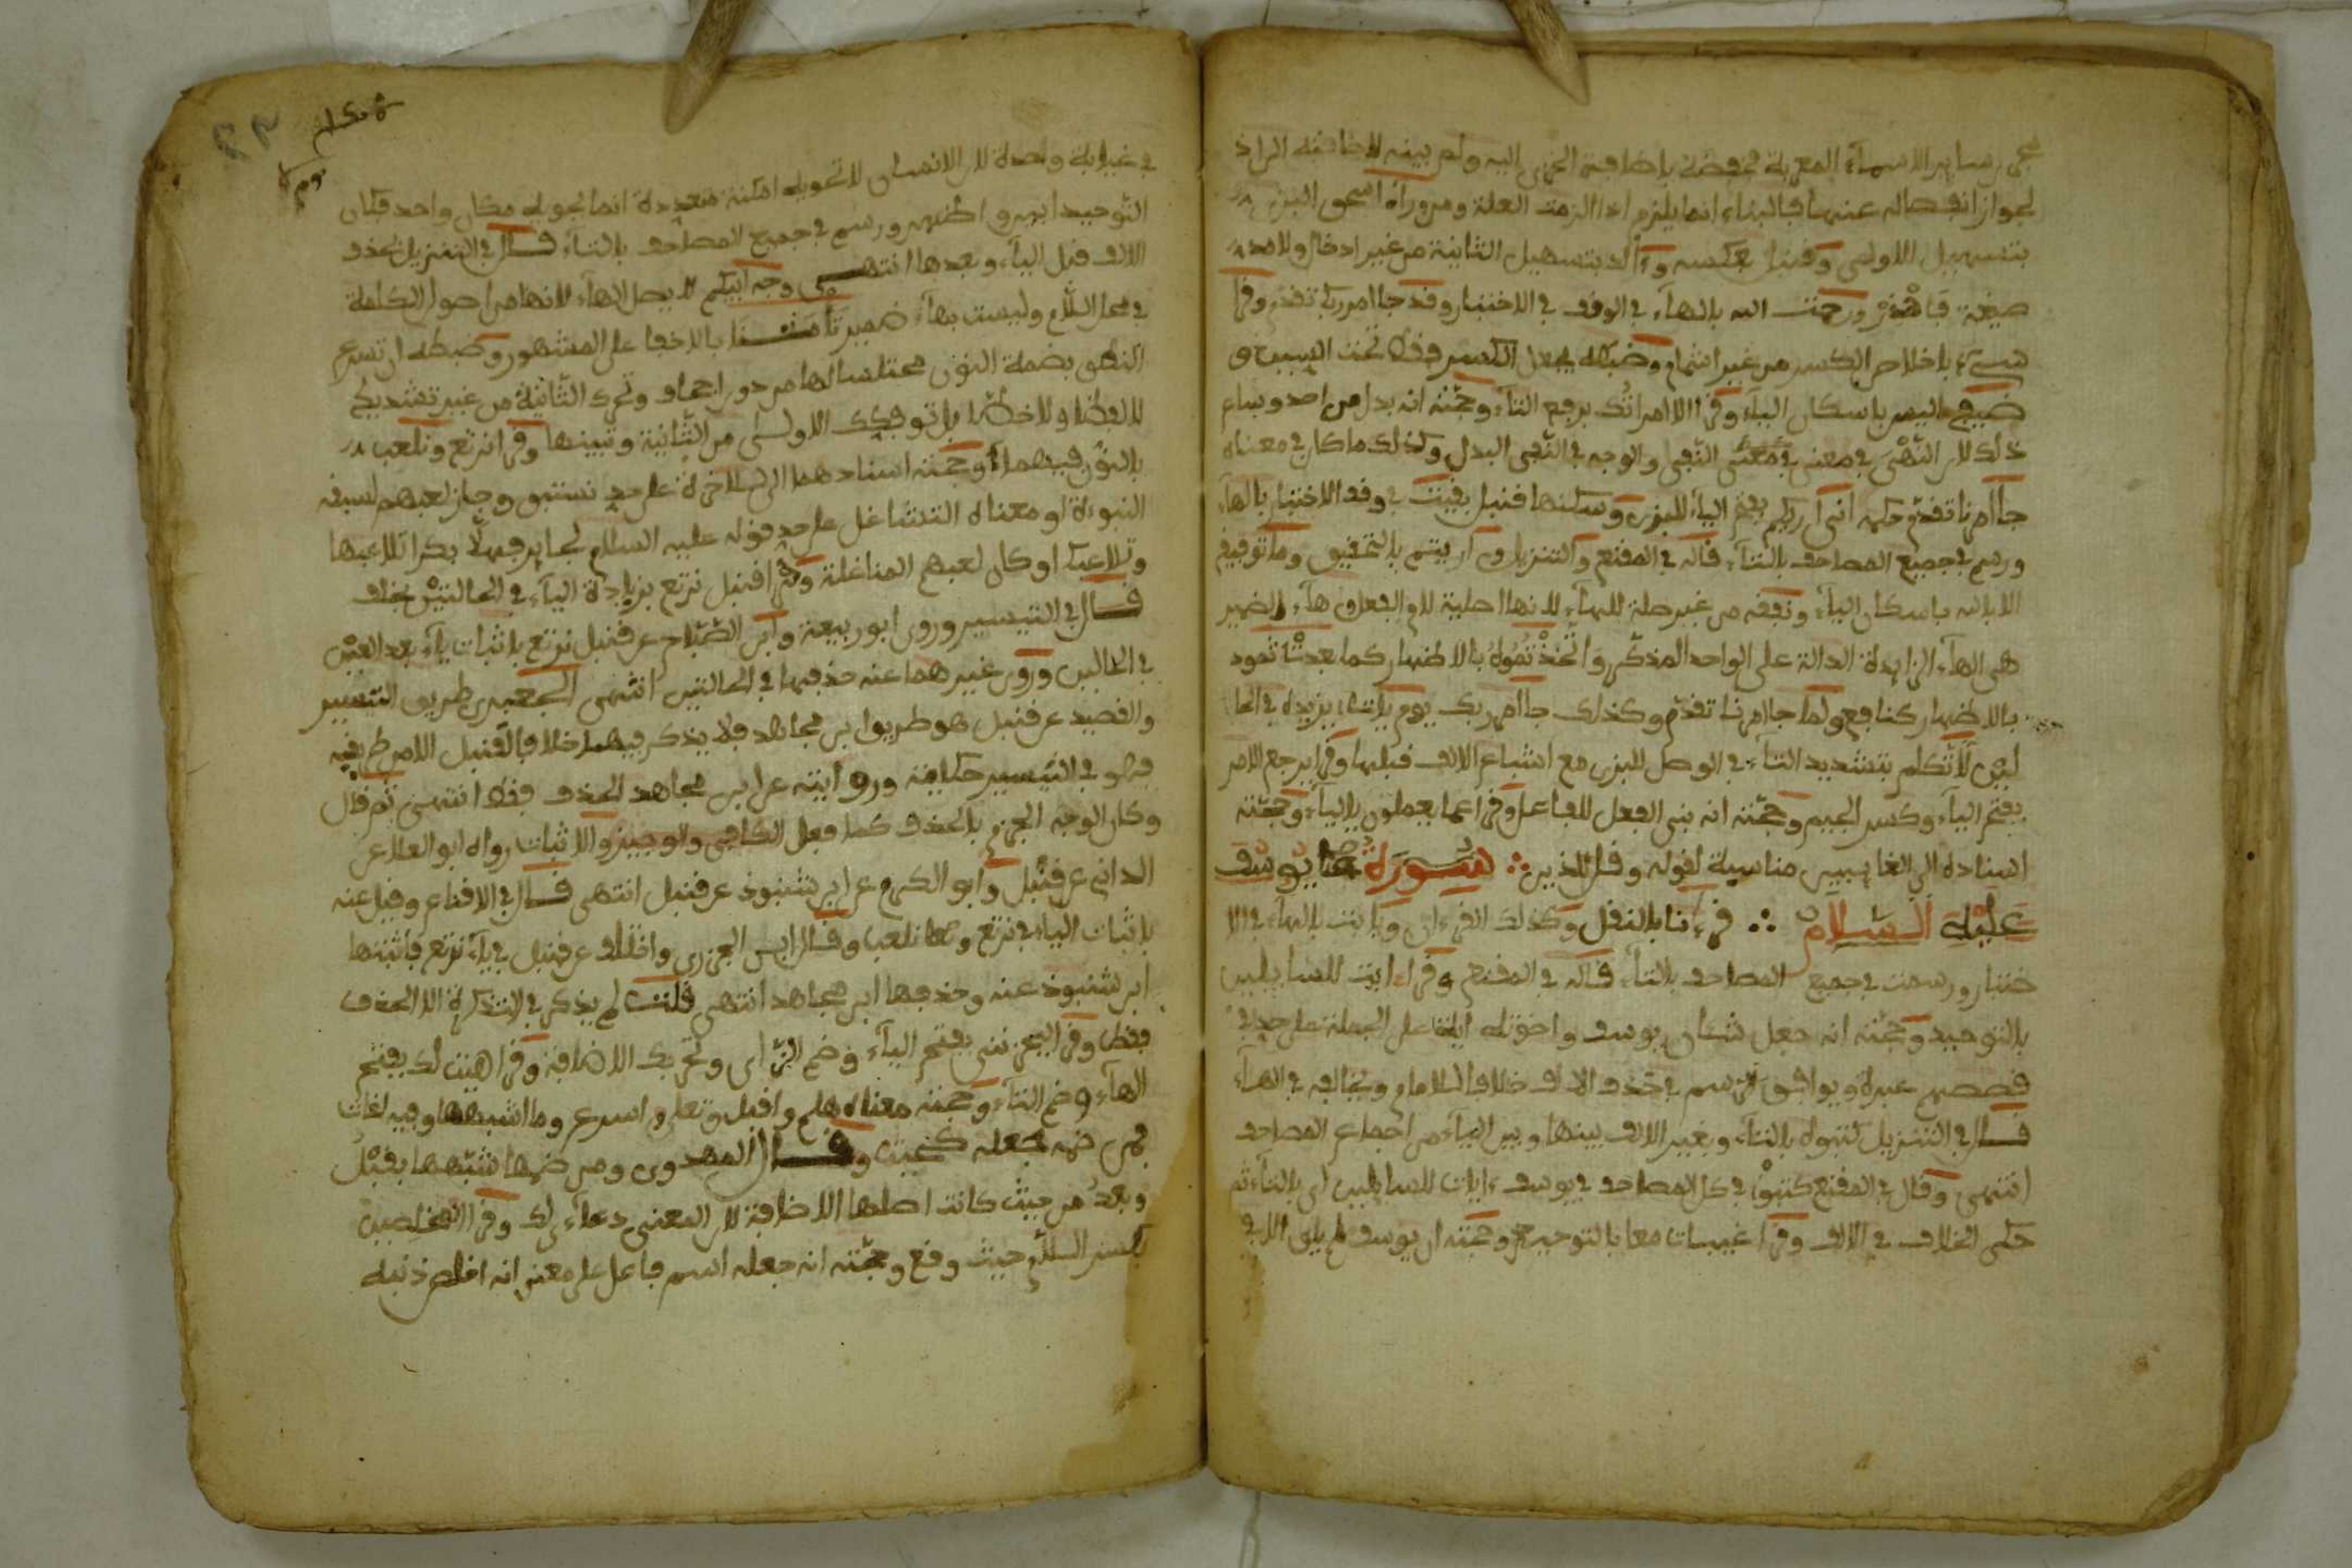 مجرى سائر الاسماء المعربة مخفوضة باضافة الخزي اليه ولم يبنه لاضافته الى اذ
لجواز انفصاله عنها فالبناء انما يلزم اذا لزمت العلة ومن وراء اسحق البزي
بتسهيل الاولى وقنبل بعكسه وءألد بتسهيل الثانية من غير ادخال ولامدا
صيغة ورحمت الله بالهاء في الوقف في الاختبار وقد جا امر ربك تقدم وقرا
سيء باخلاص الكسر من غير اشمام وضبطه بجعل الكسر فقط تحت السين و
ضيفي اليس باسكان الياء وقرا الا امراتك برفع التاء وحجته انه بدل من احد وساغ
ذلك لان النهي في معنى النفي والوجه في النفي البدل وكذلك ما كان في معناه
جا امرنا تقدم حكمه اني اريكم بفتح الياء للبزي وسكنها قنبل بقيت في وقف الاختبار بالهاء
ورسم في جميع المصاحف بالتاء قاله في المقنع والتنزيل ارايتم بالتحقيق وما توفيقي
الا بالله باسكان الياء ونفقه من غير صلة للهاء لانها اصلية لام الفعل وهاء الضمير
هي الهاء الزايدة الدالة على الواحد المذكر واتخذتموه بالاظهار كما بعدت ثمود
بالاظهار كنافع ولما جا امرنا تقدم وكذلك جا امر ربك يوم يات بزيادة في الحا
لين لا تكلم بتشديد التاء في الوصل للبزي مع اشباع الالف قبلها وقرا يرجع الامر
بفتح الياء وكسر الجيم وحجته انه بنى الفعل للفاعل وقرا عما يعملون بالياء وحجته
اسناده الى الغايبين مناسبة لقوله وقل للذين ∴ سورة يوسف
عليه السلام ∴ قرءانا بالنقل وكذلك القرءان ويا ابت بالهاء في الا
ختبار ورسمت في جميع المصاحف بالتاء قاله في المقنع وقرا ءايت للسايلين
بالتوحيد وحجته انه جعل شان يوسف واخوته اية على الجملة على حد في
قصصهم عبرة ويوافق الرسم في حذف الالف خلافا للامام ويخالفه في الهاء
قال في التنزيل كتبوه بالتاء وبغير الالف بينها وبين الياء من اجماع المصاحف
انتهى وقال في المقنع كتبوا في كل المصاحف في يوسف ءايات للسايلين اي بالتاء ثم
حكى الخلاف في الالف وقرا غيبات معا بالتوحيد وحجته ان يوسف لم يلق الا في
في غيابة واحدة لان الانسان لا تحويه امكنة متعددة انما يحويه مكان واحد فكان
التوحيد ابين واظهر ورسم في جميع المصاحف بالتاء قال في التنزيل بحذف
الالف قبل الياء وبعدها انتهى وجه ابيكم لا يصل الهاء لانها من اصول الكلمة
في محل اللام وليست بهاء ضمير تامنا بالاخفا على المشهور وضبطه ان تسرع
النطق بضمة النون مختلسا لها من دون ادغام وتحرك الثانية من غير تشديد
لا لفظا ولا خطا بل توقيفك الاولى من الثانية وتبينها وقرا نرتع ونلعب
بالنون فيهما وحجته اسنادهما الى الاخوة على حد نستبق وجاز لعبهم لسبقه
النبوءة او معناه التشاغل على حد قوله عليه السلام لجابر فهلا بكرا تلاعبها
وتلاعبك او كان لعبهم المناضلة وقرا قنبل نرتع بزيادة الياء في الحالتين بخلف
قال في التيسير وروى ابو ربيعة وابن الصباح عن قنبل نرتع باثبات ياء بعد العين
في الحالين وروى غيرهما عنه حذفها في الحالتين انتهى الجعبري طريق التيسير
والقصيد عن قنبل هو طريق ابن مجاهد فلا يذكر فيهما خلافا لقنبل الا من طريقه
فهو في التيسير حكاية وروايته عن ابن مجاهد الحذف فقط انتهى ثم قال
وكان الوجه الجزم بالحذف كما فعل الكافي والوجيز والاثبات رواه ابو العلا عن
الداني عن قنبل وابو الكرم عن ابن شنبوذ عن قنبل انتهى قال في الاقناع وقيل عنه
باثبات الياء في نرتع ونلعب وقال ابن الجزري واختلف عن قنبل في ياء نرتع فاثبتها
ابن شنبوذ عنه وحذفها ابن مجاهد انتهى قلت لم يذكر في التذكرة الا الحذف
فقط وقرا ليحزنني بفتح الياء وضم الزاي وتحريك الاضافة وقرا هيت لك بفتح
الهاء وضم التاء وحجته معناه هلم واقبل وتعل واسرع وما اشبهها وفيه لغات
فمن ضمه جعله كحيث وقال المهدوي ومن ضمها شبهها بقبل
وبعد من حيث كانت اصلها الاضافة لان المعنى دعاءي لك وقرا المخلصين
بكسر اللام حيث وقع وحجته انه جعله اسم فاعل على معنى انه اخلص دينه